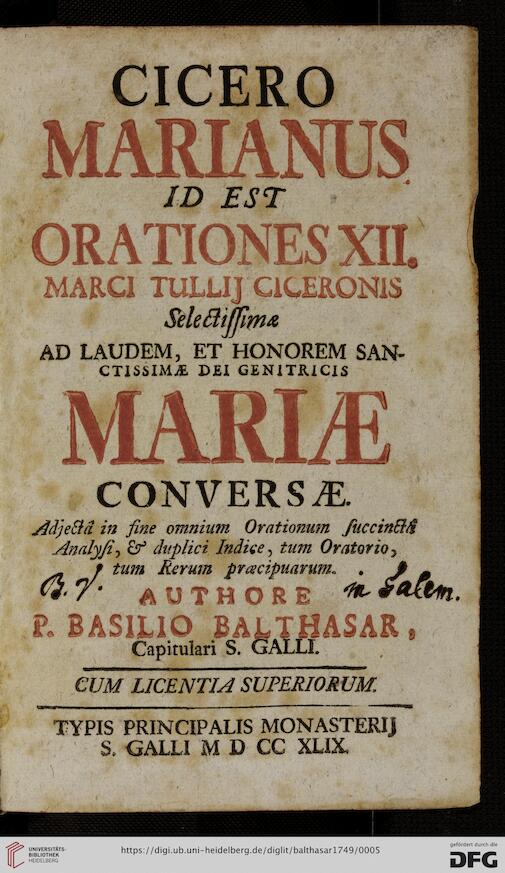 CICERO
MARIANUS
ID EST
ORATIONES XII.
MARCI TULLIJ CICERONIS
Selectissimæ
AD LAUDEM, ET HONOREM SAN-
CTISSIMÆ DEI GENITRICIS
MARIÆ
CONVERSÆ.
Adjectâ in fine omnium Orationum succinctâ
Analysi, & duplici Indice, tum Oratorio,
tum Rerum præcipuarum.
B. V. in Salem.
AUTHORE
P. BASILIO BALTHASAR,
Capitulari S. GALLI.
CUM LICENTIA SUPERIORUM.
TYPIS PRINCIPALIS MONASTERIJ
S. GALLI M D CC XLIX.
UNIVERSITÄTS-
BIBLIOTHEK
HEIDELBERG
https://digi.ub.uni-heidelberg.de/diglit/balthasar1749/0005
gefördert durch die
DFG